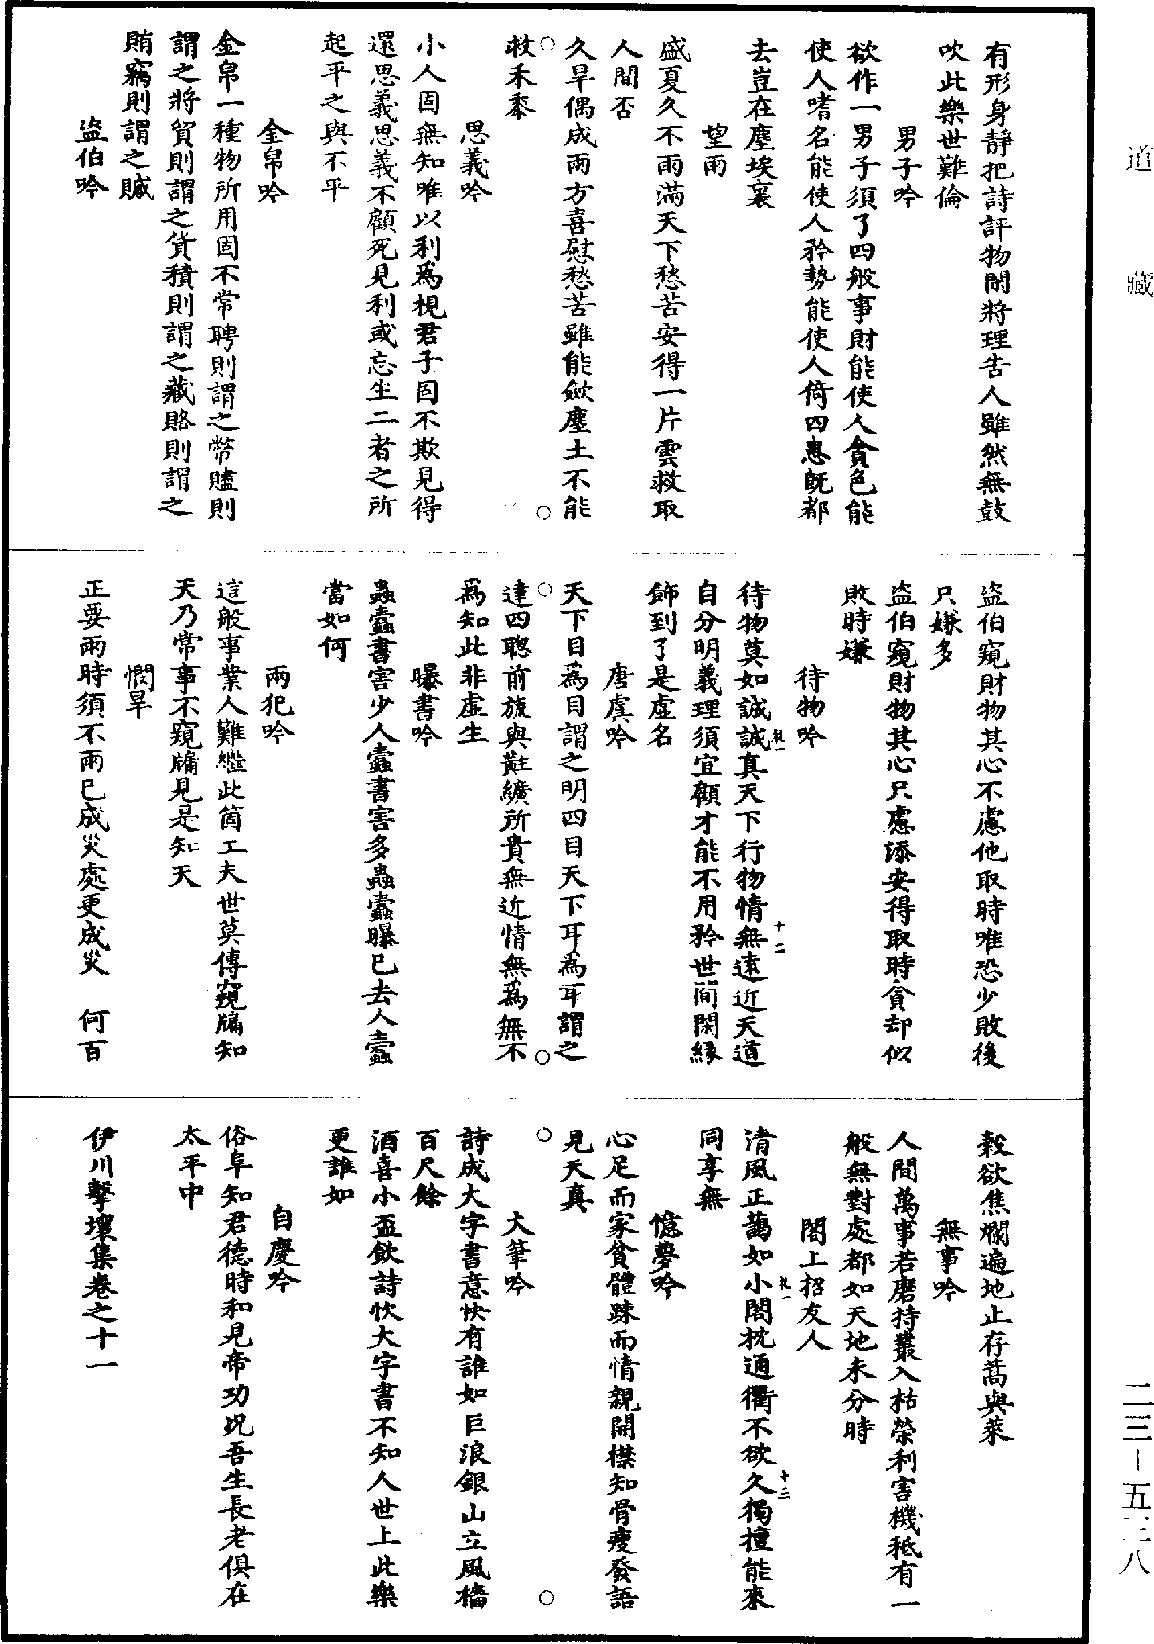 道藏
有形身靜把詩評物閒將理告人雖然無鼓
吹此樂世難倫
男子吟
欲作一男子須了四般事財能使人貪色能
使人嗜名能使人矜勢能使人倚四患既都
去豈在塵埃裏
望雨
盛夏久不雨滿天下愁苦安得一片雲救取
人間否
久旱偶成雨方喜慰愁苦雖能斂塵土不能
救禾黍
思義吟
小人固無知唯以利為視君子固不欺見得
還思義思義不顧死見利或忘生二者之所
起平之與不平
金帛吟
金帛一種物所用固不常聘則謂之幣贐則
謂之將貿則謂之貨積則謂之藏賂則謂之
賄竊則謂之贓
盜伯吟
盜伯窺財物其心不慮他取時唯恐少敗後
只嫌多
盜伯窺財物其心只慮添安得取時貪却似
敗時嫌
待物吟
待物莫如誠誠真天下行物情無遠近天道
自分明義理須宜顧才能不用矜世間閑緣
飾到了是虛名
唐虞吟
天下目為目謂之明四目天下耳為耳謂之
達四聰前旒與黈纊所貴無近情無為無不
為知此非虛生
曝書吟
蟲蠹書害少人蠹書害多蟲蠹曝已去人蠹
當如何
兩犯吟
這般事業人難繼此箇工夫世莫傳窺牖知
天乃常事不窺牖見是知天
憫旱
正要雨時須不雨已成災處更成災 何百
穀欲焦爛遍地止存蒿與萊
無事吟
人間萬事若磨持叢入枯榮利害機秪有一
般無對處都如天地未分時
閣上招友人
清風正藹如小閣枕通衢不欲久獨擅能來
同享無
憶夢吟
心足而家貧體疎而情親開襟知骨瘦發語
見天真
大筆吟
詩成大字書意快有誰如巨浪銀山立風檣
百尺餘
酒喜小盃飲詩快大字書不知人世上此樂
更誰如
自慶吟
俗阜知君德時和見帝功况吾生長老俱在
太平中
伊川擊壤集卷之十一